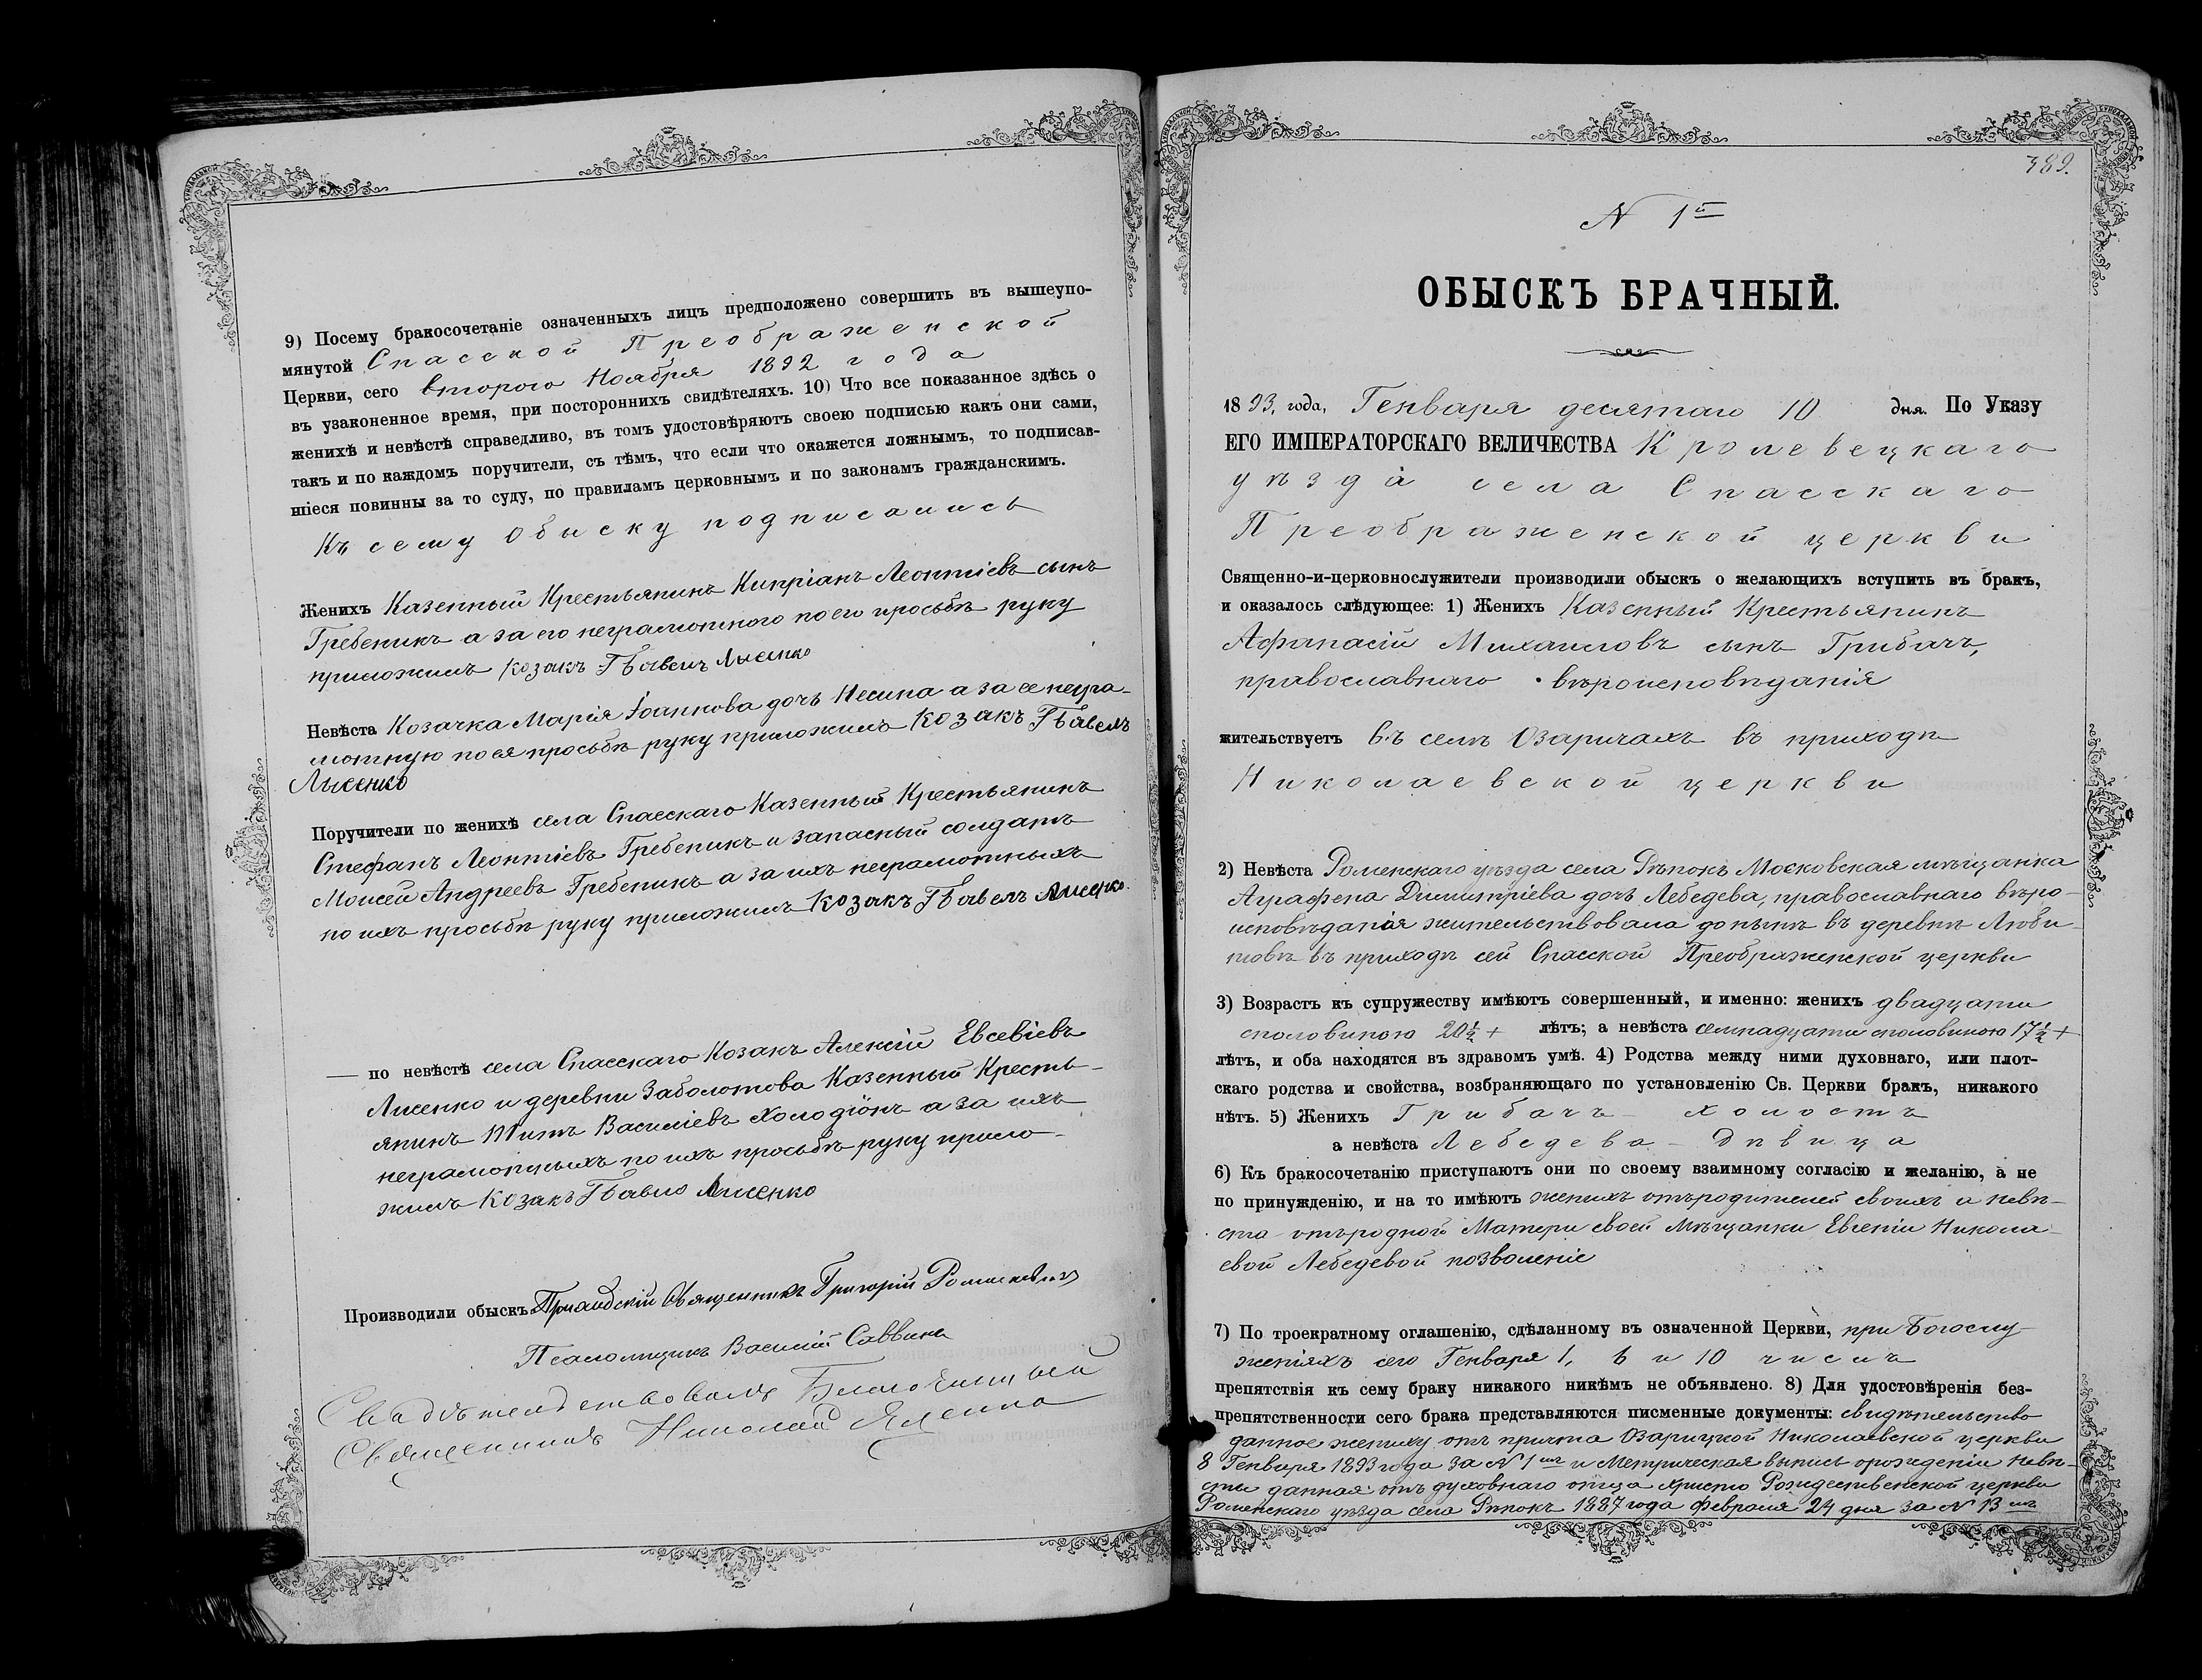 9) Посему бракосочетаніе означенныхъ лицъ предположено совершить въ вышеупо-
мянутой Спасской Преображенской
Церкви, сего второго Ноября 1892 года
въ узаконенное время, при постороннихъ свидѣтеляхъ. 10) Что все показанное здѣсь о
женихѣ и невѣстѣ справедливо, въ томъ удостовѣряютъ своею подписью какъ они сами,
такъ и по каждомъ поручители, съ тѣмъ, что если что окажется ложнымъ, то подписав-
шіеся повинны за то суду, по правиламъ церковнымъ и по законамъ гражданскимъ.
Къ сему обыску подписались
Женихъ Казенный Крестьянинъ Кипріанъ Леонтіевъ сынъ
Гребеникъ а за его неграмотного по его просьбѣ руку
приложилъ козакъ Павелъ Лысенко
Невѣста Козачка Марія Іоаннова дочь Несина а за ее негра-
мотную по ея просьбѣ руку приложилъ Козакъ Павелъ
Лысенко
Поручители по женихѣ села Спасскаго Казенный Крестьянинъ
Стефанъ Леонтіевъ Гребеникъ и запасный солдатъ
Моисей Андреевъ Гребеникъ а за ихъ неграмотныхъ
по ихъ просьбѣ руку приложилъ Козакъ Павелъ Лисенко.
— по невѣстѣ села Спасскаго Козакъ Алексій Евсевіевъ
Лисенко и деревни Заболотова Казенный Кресть-
янинъ Титъ Василіевъ Холодіонъ а за ихъ
неграмотныхъ по ихъ просьбѣ руку прило-
жилъ Козакъ Павло Лисенко
Производили обыскъ: Приходскій Священникъ Григорій
Псаломщикъ Василій Саввина
Свидѣтельствовалъ Благочинный
Священникъ Николай
389.
N 1й
ОБЫСКЪ БРАЧНЫЙ.
1893, года, Генваря десятаго 10 дня. По Указу
ЕГО ИМПЕРАТОРСКАГО ВЕЛИЧЕСТВА Кролевецкаго
уѣзда села Спасскаго
Преображенской церкви
Священно-и-церковнослужители производили обыскъ о желающихъ вступить въ бракъ,
и оказалось слѣдующее: 1) Женихъ Казенный Крестьянинъ
Афанасій Михаиловъ сынъ Грибачъ,
православнаго вѣроисповѣданія
жительствуетъ въ селѣ Озаричахъ въ приходѣ
Николаевской церкви
2) Невѣста Роменскаго уѣзда села Рѣпокъ Московская мѣщанка
Аграфена Димитріева дочь Лебедева, православнаго вѣро-
исповѣданія жительствовала донынѣ въ деревнѣ Люби-
товѣ въ приходѣ сей Спасской Преображенской церкви
3) Возрастъ къ супружеству имѣютъ совершенный, и именно: женихъ двадцати
споловиною 20½ + лѣтъ; а невѣста семнадцати споловиною 17½ +
лѣтъ, и оба находятся въ здравомъ умѣ. 4) Родства между ними духовнаго, или плот-
скаго родства и свойства, возбраняющаго по установленію Св. Церкви бракъ, никакого
нѣтъ. 5) Женихъ Грибачъ — холостъ
а невѣста Лебедева — дѣвица
6) Къ бракосочетанію приступаютъ они по своему взаимному согласію и желанію, а не
по принужденію, и на то имѣютъ женихъ отъ родителей своихъ а невѣ-
ста отъ родной Матери своей Мѣщанки Евгеніи Никола-
евой Лебедевой позволеніе
7) По троекратному оглашенію, сдѣланному въ означенной Церкви, при Богослу-
женіяхъ сего Генваря 1, 6 и 10 числъ
препятствія къ сему браку никакого никѣмъ не объявлено. 8) Для удостовѣренія без-
препятственности сего брака представляются писменные документы: свидѣтельство
данное жениху отъ причта Озарицкой Николаевской церкви
8 Генваря 1893 года за N 1мъ и Метрическая выпись о рожденіи невѣ-
сты данная отъ духовнаго отца Христо Рождественской церкви
Роменскаго уѣзда села Рѣпокъ 1887 года Февраля 24 дня за N 13мъ